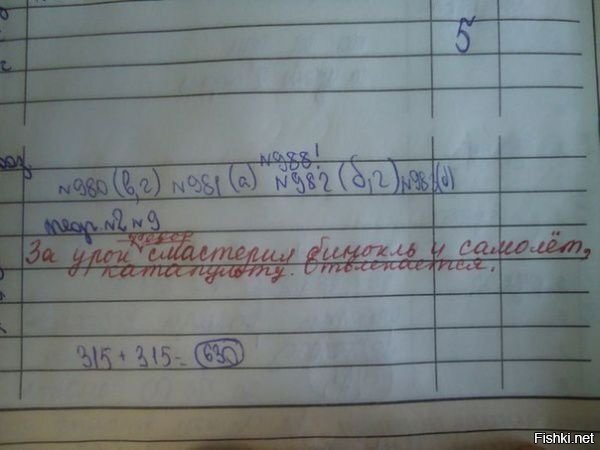 5
№988!
№980 (в,г) №981 (а) №982 (б,г) №983(б)
№2 №9
За урок смастерил бинокль и самолёт,
катапульту. Отвлекается.
315 + 315 = 630
Fishki.net